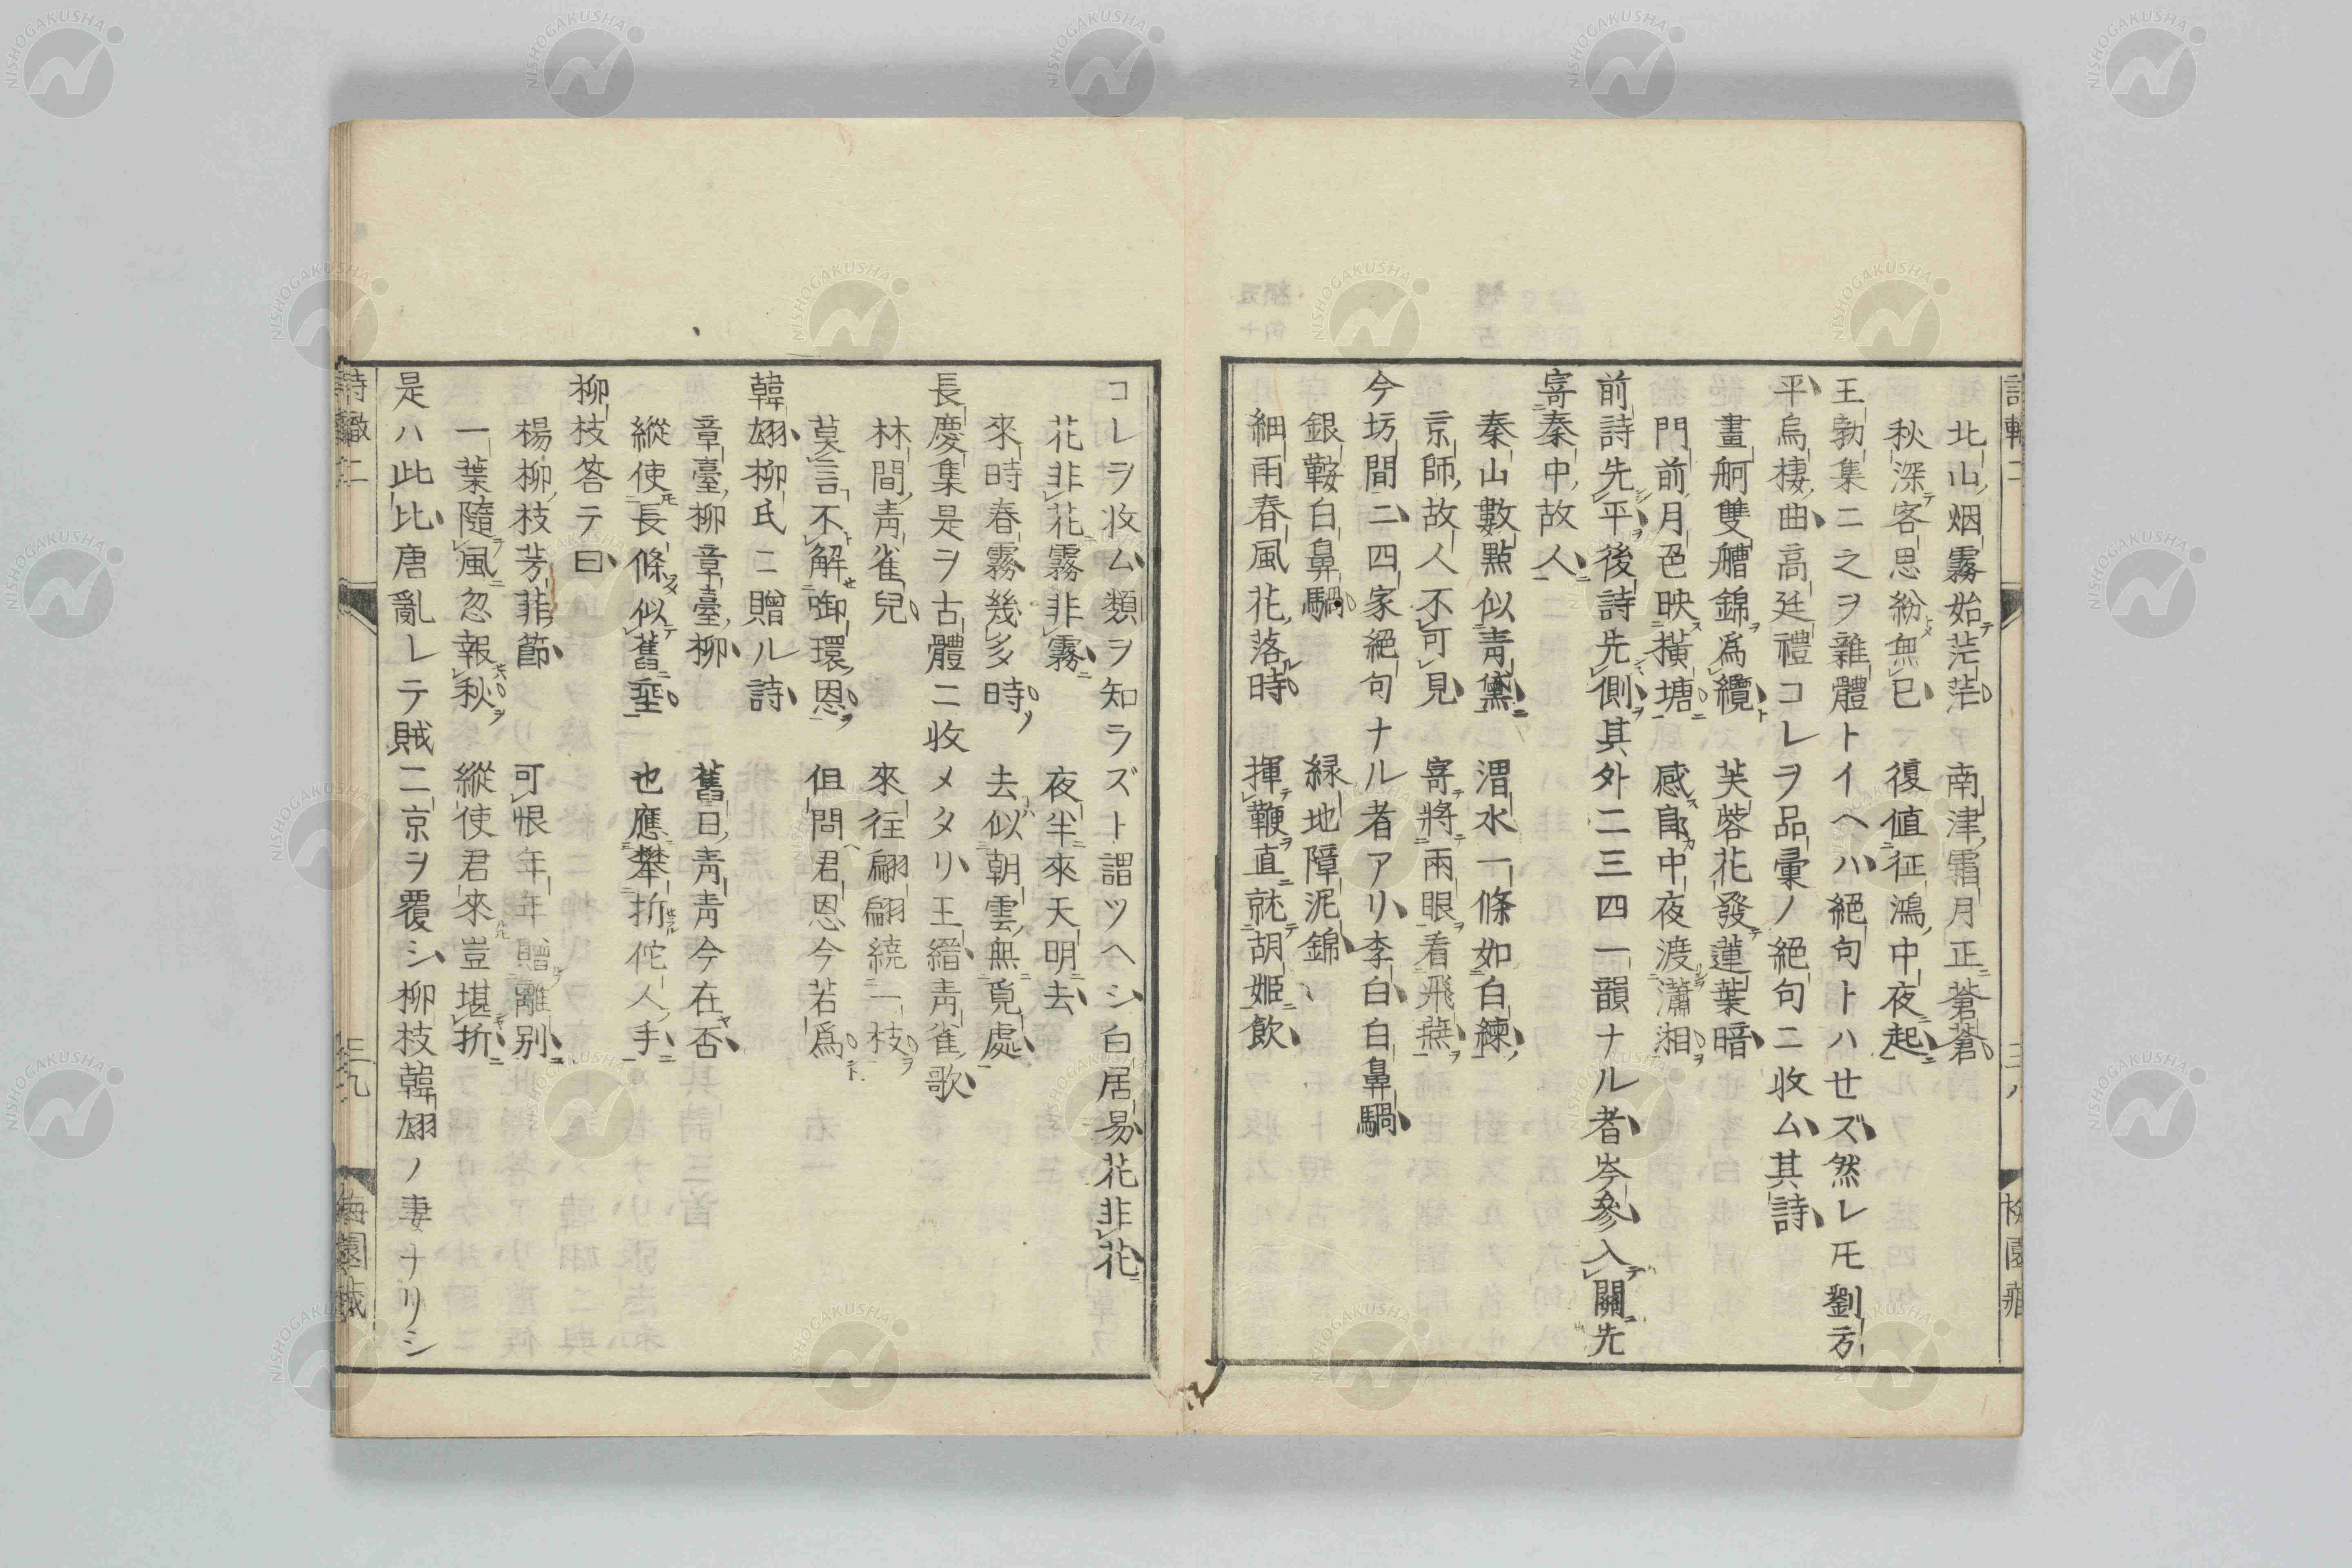 北山烟霧始茫茫　南津霜月正蒼蒼
秋深客思紛無已　復値征鴻中夜起
王勃集ニ之ヲ雜體トイヘハ絕句トハせズ然レ𪜈劉方
平烏棲曲高廷禮コレヲ品彙ノ絕句ニ收ム其詩
畫舸雙艚錦爲纜　芙蓉花發蓮葉暗
門前月色映橫塘　感郎中夜渡瀟湘
前詩先平後詩先側其外二三四一韻ナル者岑參入關先
寄秦中故人
秦山數點似青黛　渭水一條如白練
京師故人不可見　寄將兩眼看飛燕
今坊間二四家絕句ナル者アリ李白白鼻騧
銀鞍白鼻騧　緑地障泥錦
細雨春風花落時　揮鞭直就胡姬飲
コレヲ收ム類ヲ知ラズト謂ツヘシ白居易花非花
花非花霧非霧　夜半來天明去
來時春霧幾多時　去似朝雲無覓處
長慶集是ヲ古體ニ收メタリ王縉青雀歌
林間青雀兒　來往翩翩繞一枝
莫言不解啣環恩　但問君恩今若爲
韓翃柳氏ニ贈ル詩
章臺柳章臺柳　舊日青青今在否
縱使長條似舊埀　也應攀折佗人手
柳枝答テ曰
楊柳枝芳菲節　可恨年年贈離別
一葉隨風忽報秋　縱使君來豈堪折
是ハ此比唐亂レテ賊二京ヲ覆シ柳枝韓翃ノ妻ナリシ
詩轍二　三九　梅園藏
NISHOGAKUSHA